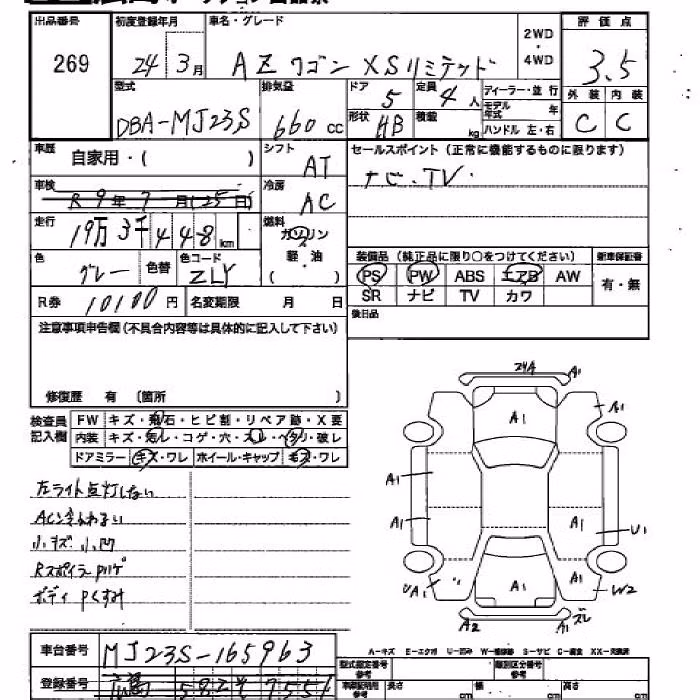 出品番号 269
初度登録年月 24 3月
車名・グレード AZワゴン XSリミテッド
2WD・4WD
評価点 3.5
外装 内装
C C
型式 DBA-MJ23S
排気量 660 cc
ドア 5
定員 4 人
形状 HB
積載 kg
ディーラー・並行
モデル年式 年
ハンドル 左・右
車歴 自家用・( )
シフト AT
セールスポイント (正常に機能するものに限ります)
ナビ・TV・
車検 R9年7月(25日)
冷房 AC
走行 19万3千448km
燃料 ガソリン 軽・油 ( )
色 グレー 色替
色コード ZLY
装備品 (純正品に限り○をつけてください)
新車保証書 有・無
PS PW ABS エアB AW
SR ナビ TV カワ
R券 10100 円
名変期限 月 日
後日品
注意事項申告欄(不具合内容等は具体的に記入して下さい)
修復歴 有 (箇所 )
検査員記入欄
FW キズ・飛石・ヒビ割・リペア跡・X要
内装 キズ・汚レ・コゲ・穴・スレ・ヘタリ・破レ
ドアミラー キズ・ワレ ホイール・キャップ キズ・ワレ
左ライト点灯しない
小キズ 小凹
Rスポイラー Pハゲ
ボディ Pくすみ
24A A1
A1 A1
A1
A1 A1 U1
UA1 A1 A1 W2
A2 A1 ズレ
車台番号 MJ23S-165963
A-キズ E-エクボ U-凹み W-補修跡 S-サビ C-腐食 XX-交換済
登録番号
型式指定番号参考
類別区分番号参考
車庫証明用参考 長さ cm 幅 cm 高さ cm